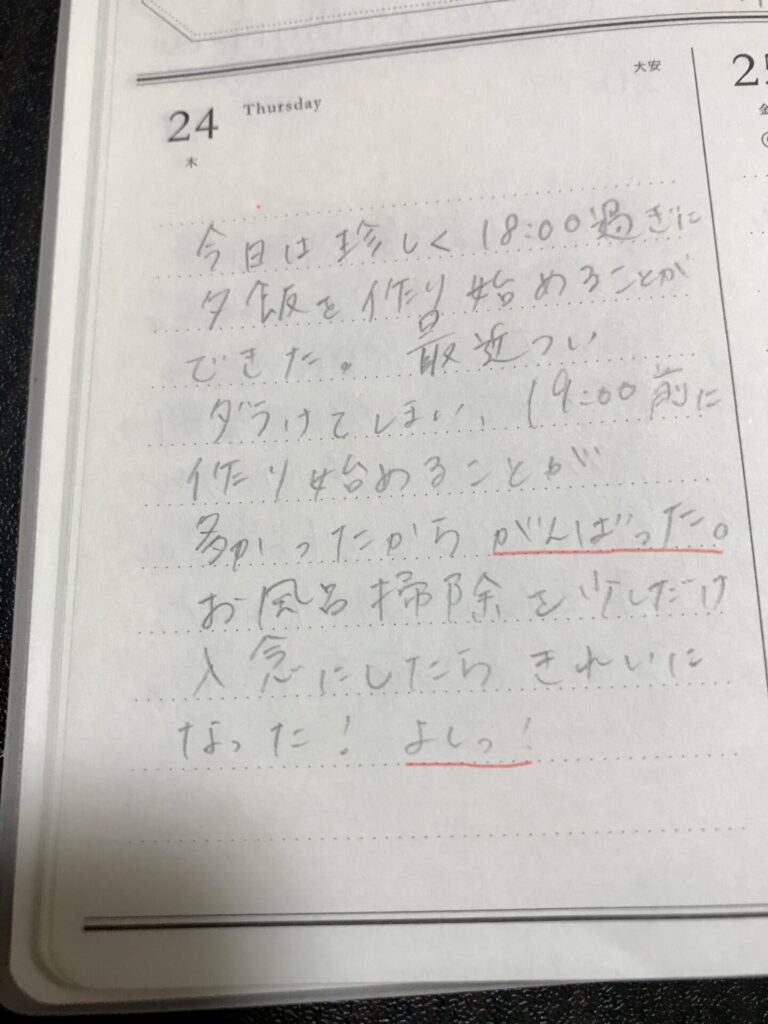 大安
24 Thursday
木
今日は珍しく18:00過ぎに
夕飯を作り始めることが
できた。最近つい
ダラけてしまい、19:00前に
作り始めることが
多かったからがんばった。
お風呂掃除を少しだけ
入念にしたらきれいに
なった！よしっ！